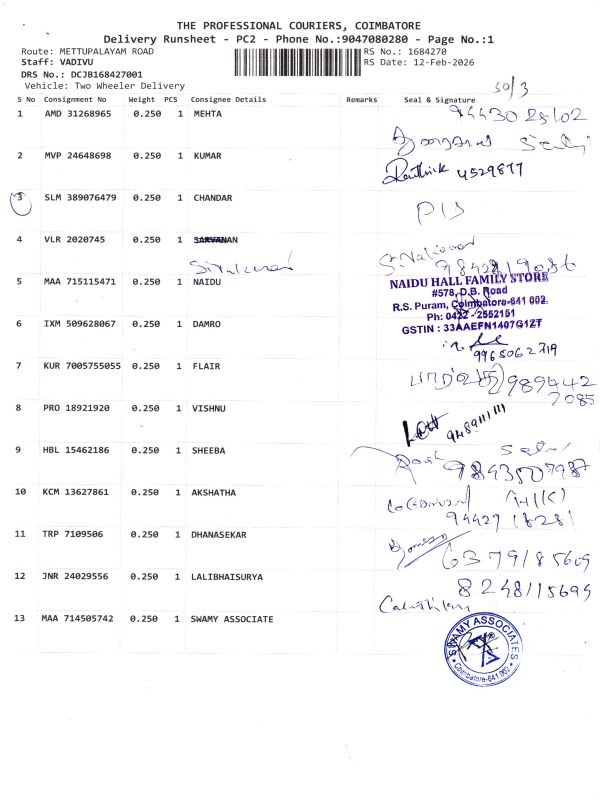 THE PROFESSIONAL COURIERS, COIMBATORE
Delivery Runsheet - PC2 - Phone No.:9047080280 - Page No.:1
Route: METTUPALAYAM ROAD RS No.: 1684270
Staff: VADIVU RS Date: 12-Feb-2026
DRS No.: DCJB168427001
Vehicle: Two Wheeler Delivery
50/3
S No Consignment No Weight PCS Consignee Details Remarks Seal & Signature
1 AMD 31268965 0.250 1 MEHTA
2 MVP 24648698 0.250 1 KUMAR
Karthick 4529877
3 SLM 389076479 0.250 1 CHANDAR
P/S
4 VLR 2020745 0.250 1 SARVANAN
5 MAA 715115471 0.250 1 NAIDU
NAIDU HALL FAMILY STORE
#578, D.B. Road
R.S. Puram, Coimbatore-641 002.
Ph: 0422 - 2552151
GSTIN : 33AAEFN1407G1ZT
6 IXM 509628067 0.250 1 DAMRO
9965062719
7 KUR 7005755055 0.250 1 FLAIR
பார்வதி 989442
7085
8 PRO 18921920 0.250 1 VISHNU
9489111111
9 HBL 15462186 0.250 1 SHEEBA
9843507987
10 KCM 13627861 0.250 1 AKSHATHA
94427 18281
11 TRP 7109506 0.250 1 DHANASEKAR
6379185609
12 JNR 24029556 0.250 1 LALIBHAISURYA
8248115695
13 MAA 714505742 0.250 1 SWAMY ASSOCIATE
SWAMY ASSOCIATES
Coimbatore-641 002